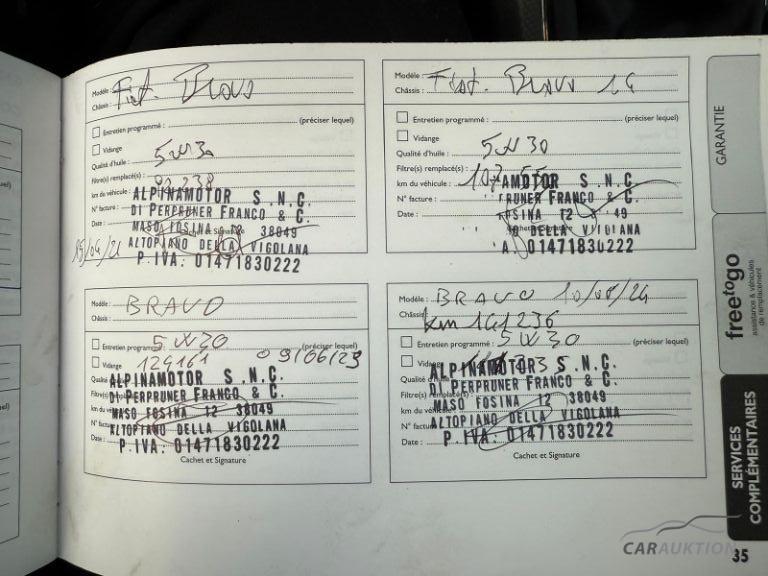 Modèle : Fiat. Bravo
Châssis :
Entretien programmé : (préciser lequel)
Vidange
Qualité d'huile : 5W30
Filtre(s) remplacé(s) :
km du véhicule :
N° facture :
Date :
Cachet et Signature
ALPINAMOTOR S.N.C.
DI PERPRUNER FRANCO & C.
MASO FOSINA 12 38049
ALTOPIANO DELLA VIGOLANA
P.IVA: 01471830222
Modèle : Fiat. Bravo
Châssis :
Entretien programmé : (préciser lequel)
Vidange
Qualité d'huile : 5W30
Filtre(s) remplacé(s) :
km du véhicule : 107
N° facture :
Date :
AMOTOR S.N.C
RUNER FRANCO & C.
OSINA 12 49
DELLA VIGOLANA
A. 01471830222
Modèle : BRAVO
Châssis :
Entretien programmé : 5W30 (préciser lequel)
Vidange 129161 09/06/23
ALPINAMOTOR S.N.C.
DI PERPRUNER FRANCO & C.
MASO FOSINA 12 38049
ALTOPIANO DELLA VIGOLANA
Date :
P.IVA: 01471830222
Cachet et Signature
Modèle : BRAVO 10/08/24
Châssis : km 141236
Entretien programmé : 5W30 (préciser lequel)
Vidange
ALPINAMOTOR S.N.C.
DI PERPRUNER FRANCO & C.
MASO FOSINA 12 38049
ALTOPIANO DELLA VIGOLANA
Date :
P.IVA: 01471830222
Cachet et Signature
GARANTIE
freetogo
assistance & véhicules
de remplacement
SERVICES
COMPLÉMENTAIRES
CARAUKTION
35